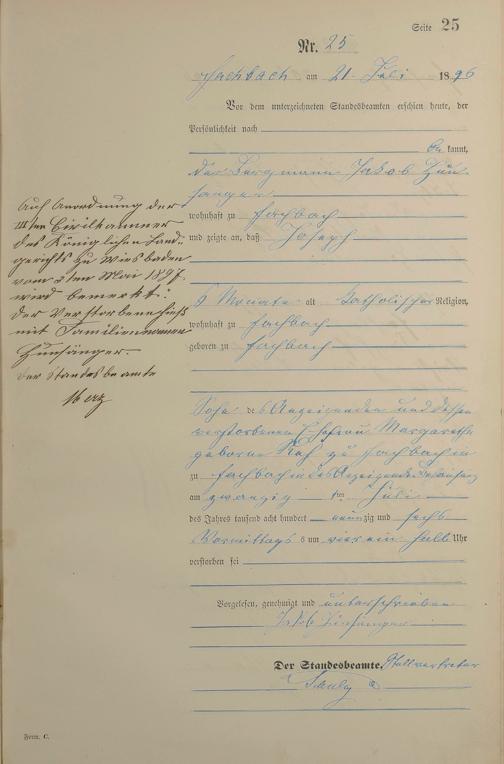 Seite 25
Nr. 25
Fachbach am 21. Juli 1896
Vor dem unterzeichneten Standesbeamten erschien heute, der
Persönlichkeit nach
be kannt,
der Bergmann Jakob Hün
sänger
wohnhaft zu Fachbach
und zeigte an, daß Joseph
9 Monate alt Katholischer Religion,
wohnhaft zu Fachbach
geboren zu Fachbach
Sohn des Anzeigenden und dessen
verstorbenen Ehefrau Margaretha
geborne zu Fachbach in
zu Fachbach in des Anzeigenden Behausung
am zwanzig ten Juli
des Jahres tausend acht hundert neunzig und sechs
Vormittags um vier ein halb Uhr
verstorben sei
Vorgelesen, genehmigt und unterschrieben
Jakob Hünsänger
Der Standesbeamte. Stellvertreter
Auf Anordnung der
IIIten Civilkammer
des Königlichen Land-
gerichts zu Wiesbaden
vom ten Mai 1897.
wird bemerkt:
Der Verstorbene hieß
mit Familiennamen
Hünsänger.
Der Standesbeamte
Form. C.